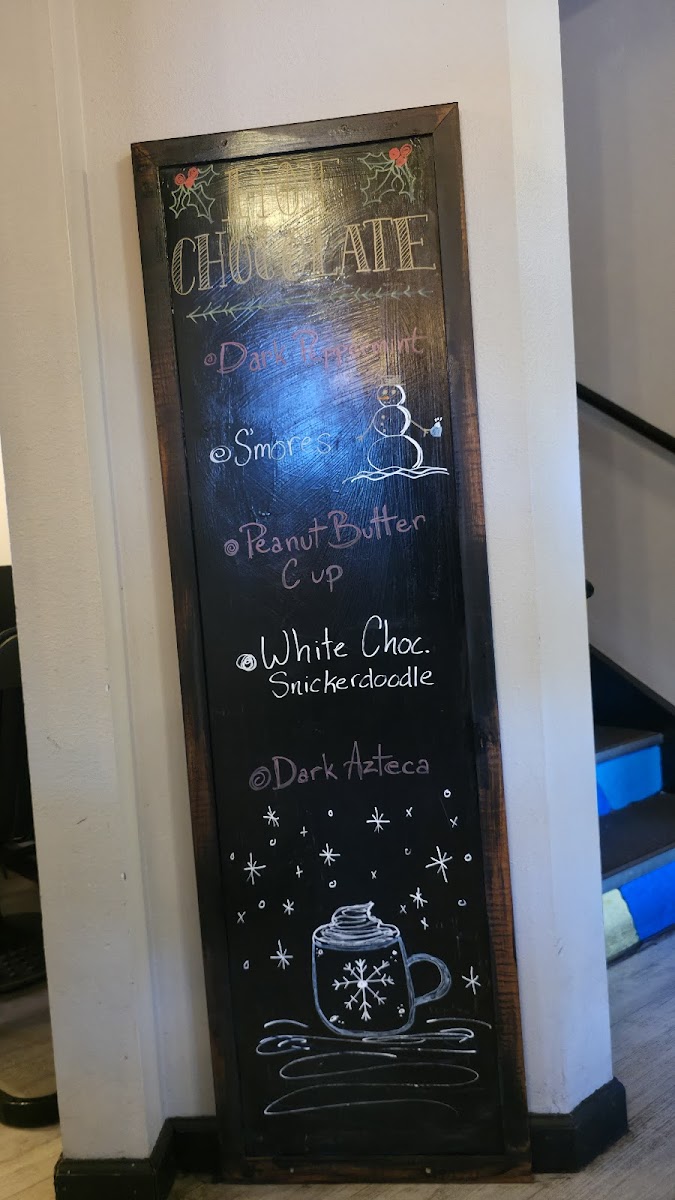 HOT
CHOCOLATE
Dark Peppermint
S'mores
Peanut Butter
Cup
White Choc.
Snickerdoodle
Dark Azteca